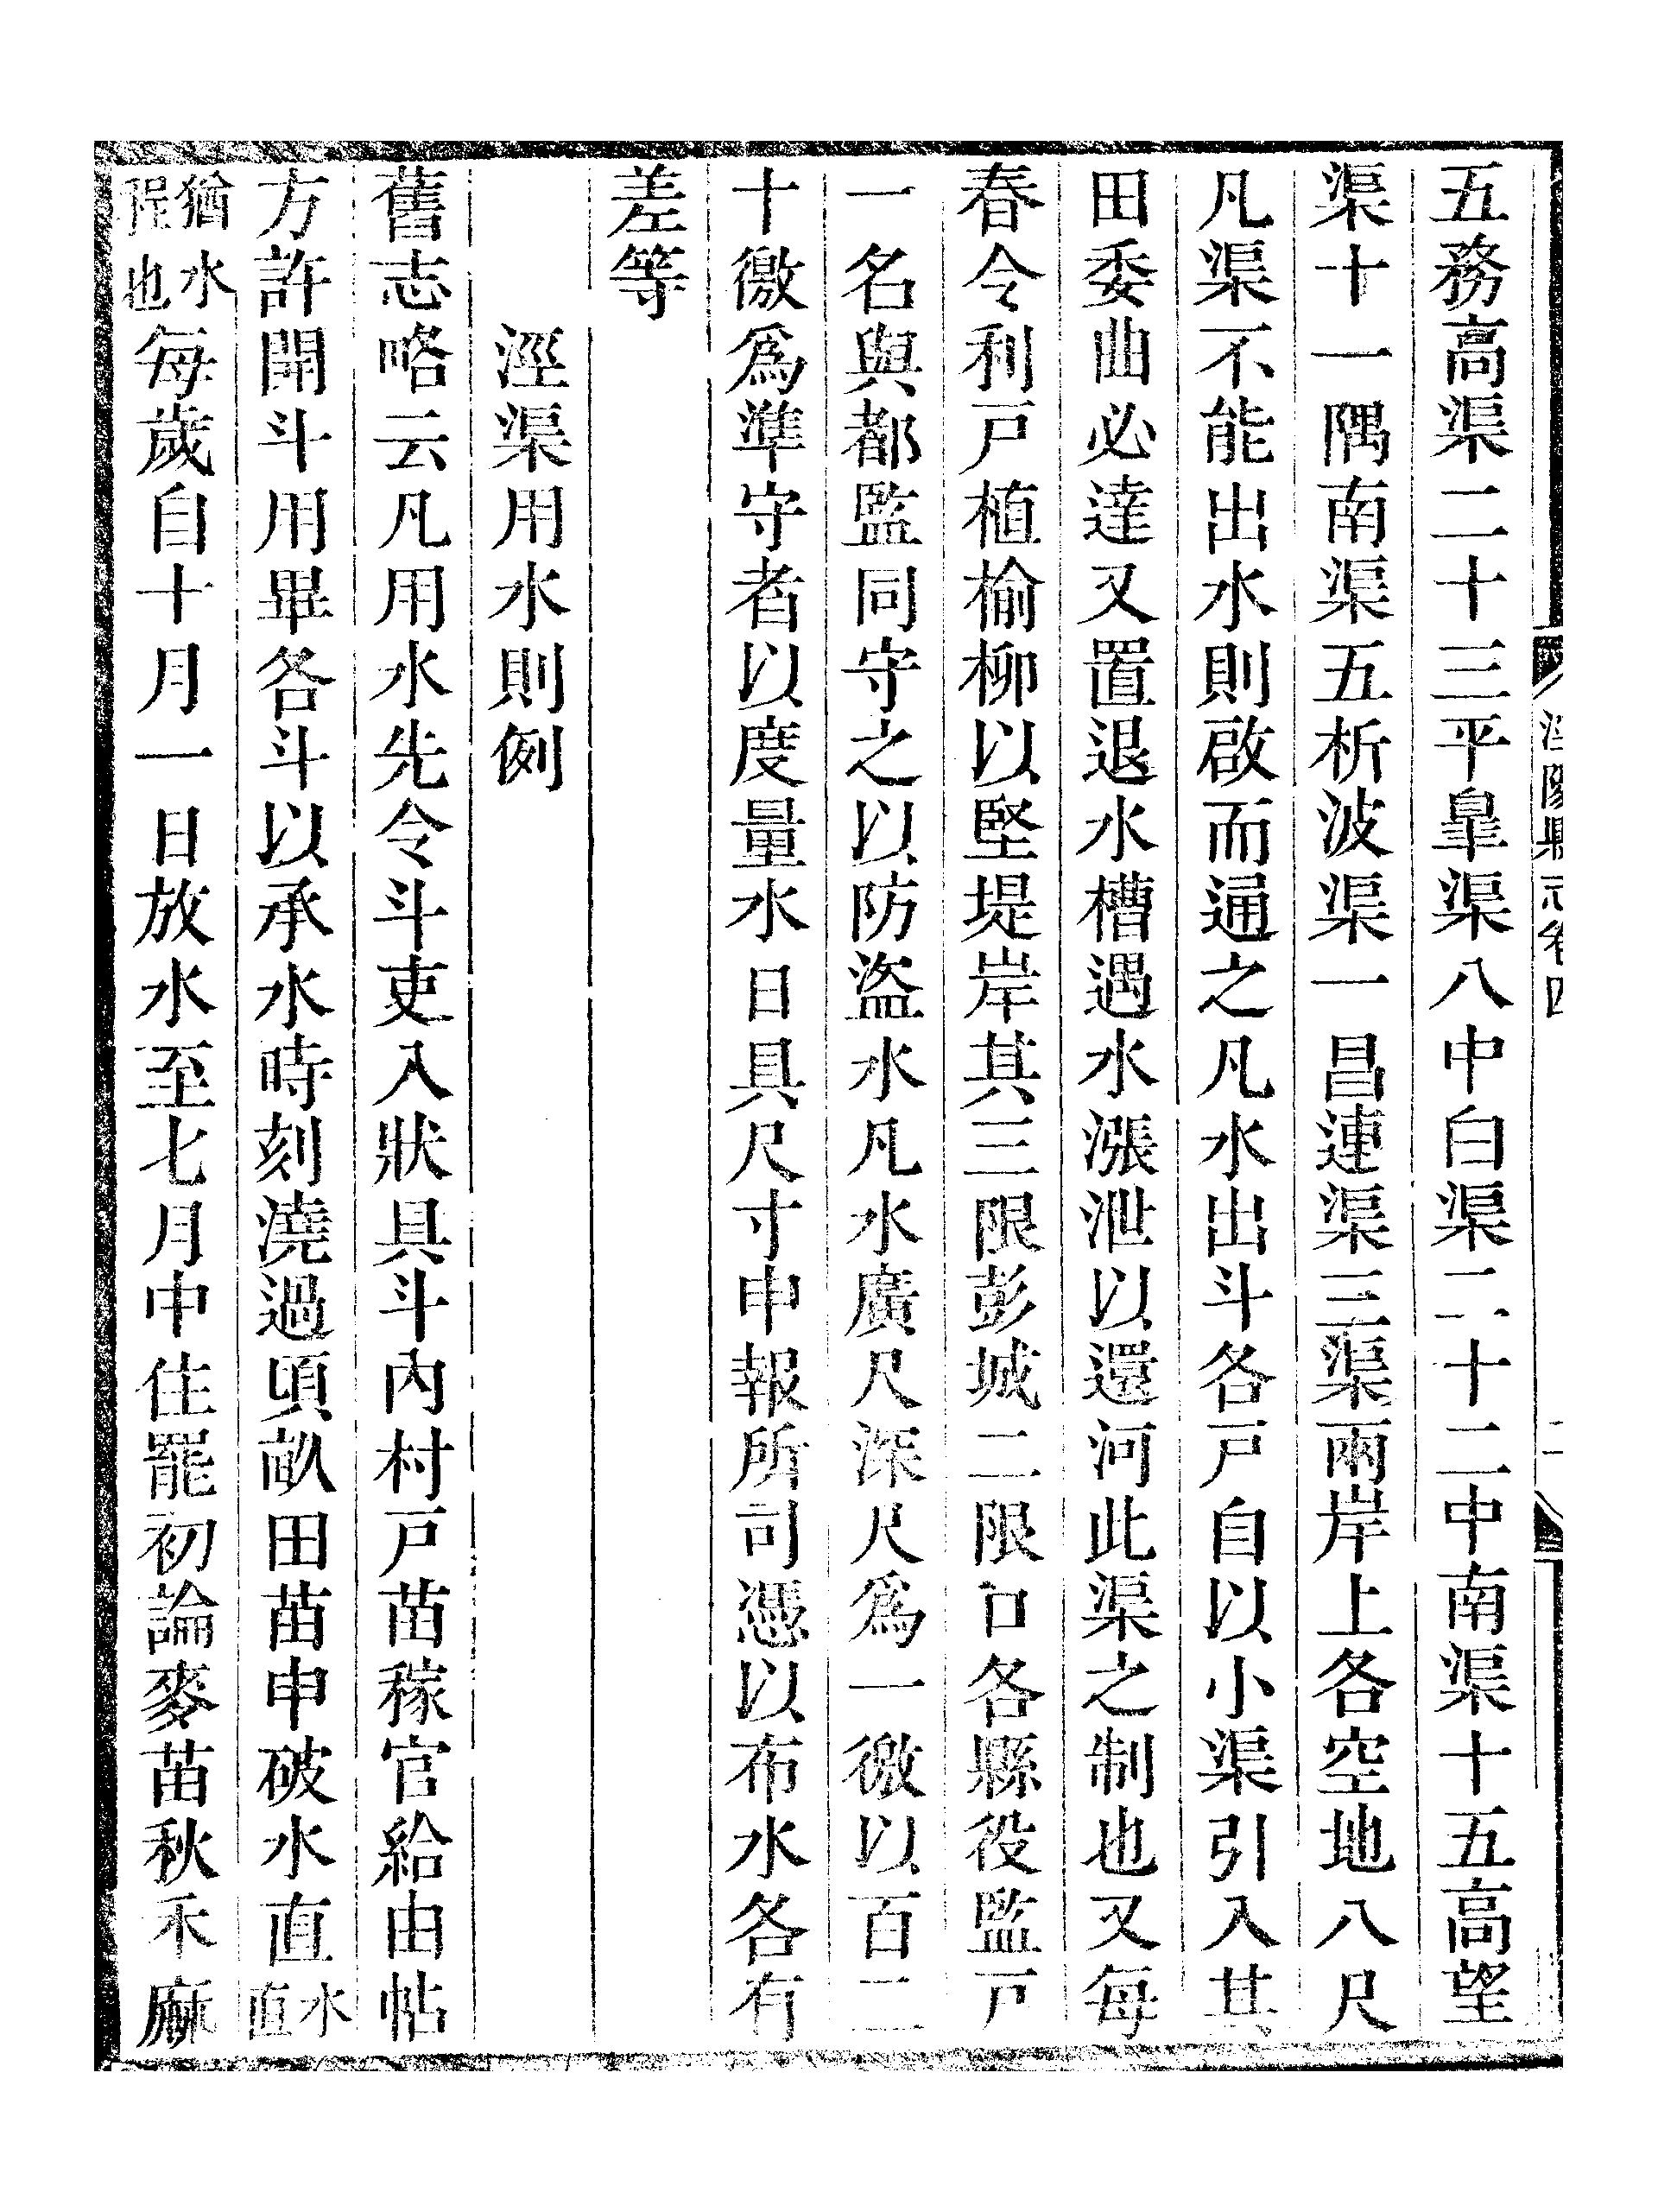 五務高渠二十三平皐渠八中白渠二十二中南渠十五高望
渠十一隅南渠五析波渠一昌連渠三渠兩岸上各空地八尺
凡渠不能出水則啟而通之凡水出斗各戸自以小渠引入其
田委曲必達又置退水槽遇水漲泄以還河此渠之制也又每
春令利戸植榆柳以堅堤岸其三限彭城二限口各縣役監戸
一名與都監同守之以防盜水凡水廣尺深尺爲一徼以百二
十徼爲準守者以度量水日具尺寸申報所司憑以布水各有
差等
涇渠用水則例
舊志略云凡用水先令斗吏入狀具斗內村戸苗稼官給由帖
方許開斗用畢各斗以承水時刻澆過頃畝田苗申破水直水直
猶水程也每歲自十月一日放水至七月中住罷初論麥苗秋禾麻
涇陽縣志卷四
二